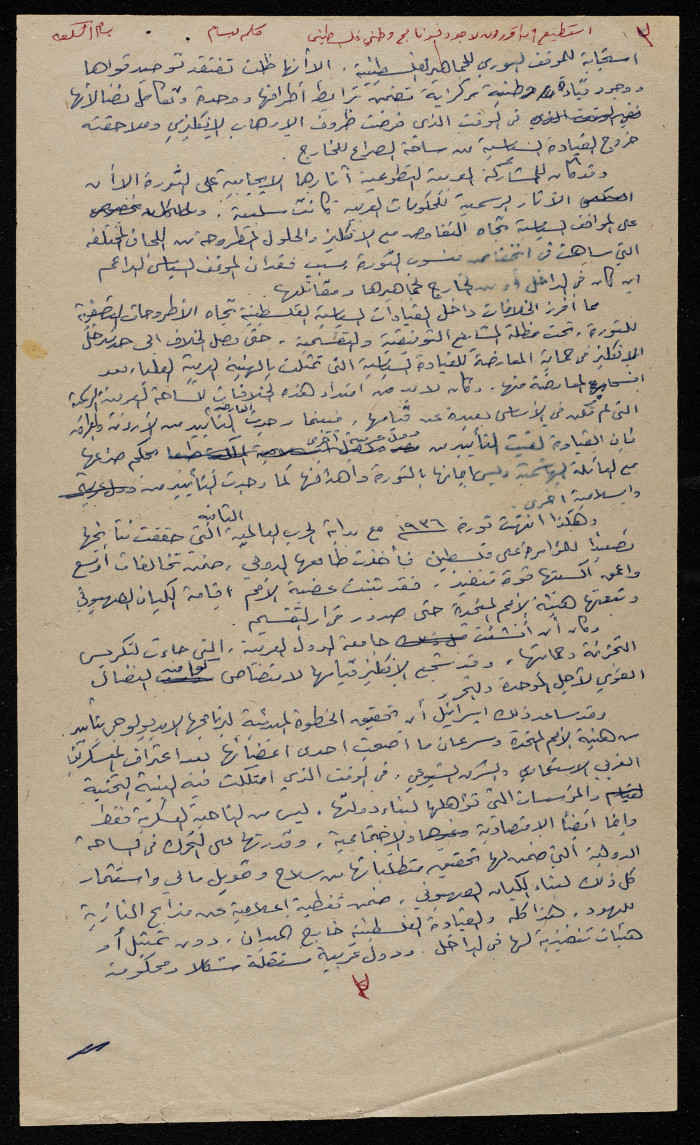 استطيع ان اقرر لا وجود لبرنامج وطني فلسطيني كلمة بسام بسام الكعبي
استجابة للموقف الثوري للجماهير الفلسطينية، الا أنها ظلت تفتقد توحيد قواها
ووجود قيادة وطنية مركزية تضمن ترابط أطرافها ووحدة وتكامل نضالاتها
في الوقت الذي فرضت ظروف الارهاب الانكليزي وملاحقته
خروج القيادة السياسية من ساحة الصراع للخارج
وقد كان للمشاركة العربية التطوعية آثارها الايجابية على الثورة الا أن
الآثار الرسمية للحكومات العربية كانت سلبية،
على المواقف السياسية تجاه التفاوض مع الانكليز والحلول المطروحة من اللجان المختلفة
التي ساهمت في انخفاض منسوب الثورة بسبب فقدان الموقف السياسي الداعم
ان كان في الداخل أو من الخارج لجماهيرها ومقاتليها
مما أفرز الخلافات داخل القيادات السياسية الفلسطينية تجاه الأطروحات التصفوية
للثورة، تحت مظلة المشاريع التوفيقية والتقسيمية، حتى وصل الخلاف الى حد تدخل
الانكليز في حماية المعارضة للقيادة السياسية التي تمثلت بالهيئة العربية العليا، بعد
انسحاب المعارضة منها. وكان لا بد من امتداد هذه الخلافات للساحة العربية الرسمية
التي لم تكن في الأساس بعيدة عن قيامها، فبينما وجدت المعارضة التأييد من الأردن والعراق
فإن القيادة لقيت التأييد من دول عربية أخرى بحكم صراعها
مع العائلة الهاشمية وليس إيمانها بالثورة وأهدافها كما وجدت التأييد من دول عربية
واسلامية أخرى.
وهكذا انتهت ثورة ١٩٣٦ مع بداية الحرب العالمية الثانية التي حققت نتائجها
تصعيدا للمؤامرة على فلسطين فأخذت طابعها الدولي، ضمن تحالفات أوسع
وأعمق أكسبتها قوة تنفيذ، فقد تبنت عصبة الأمم إقامة الكيان الصهيوني
وتبعتها هيئة الأمم المتحدة حتى صدور قرار التقسيم.
وكان أن أنشئت جامعة الدول العربية، التي جاءت لتكريس
التجزئة وحمايتها، وقد شجع الانكليز قيامها لامتصاص النضال
القومي لأجل الوحدة والتحرر
وقد ساعد ذلك اسرائيل أن تحقيق الخطوة المبدئية لبرنامجها الايديولوجي بتأييد
من هيئة الأمم المتحدة وسرعان ما أضحت احدى اعضائها بعد اعتراف المعسكرين
الغربي الاستعماري والشرقي الشيوعي، في الوقت الذي امتلكت فيه البنية التحتية
والمؤسسات التي تؤهلها لبناء دولتها، ليس من الناحية العسكرية فقط
وانما ايضا الاقتصادية والاجتماعية، وقدرتها على التحرك في الساحة
الدولية التي ضمن لها تحقيق متطلباتها من سلاح وتمويل مالي واستثمار
كل ذلك لبناء الكيان الصهيوني، ضمن تغطية إعلامية عن مذابح النازية
لليهود، هذا كله والقيادة الفلسطينية خارج الميدان، دون تمثيل أو
هيئات تنفيذية لها في الداخل. ودول عربية مستقلة شكلا ومحكومة